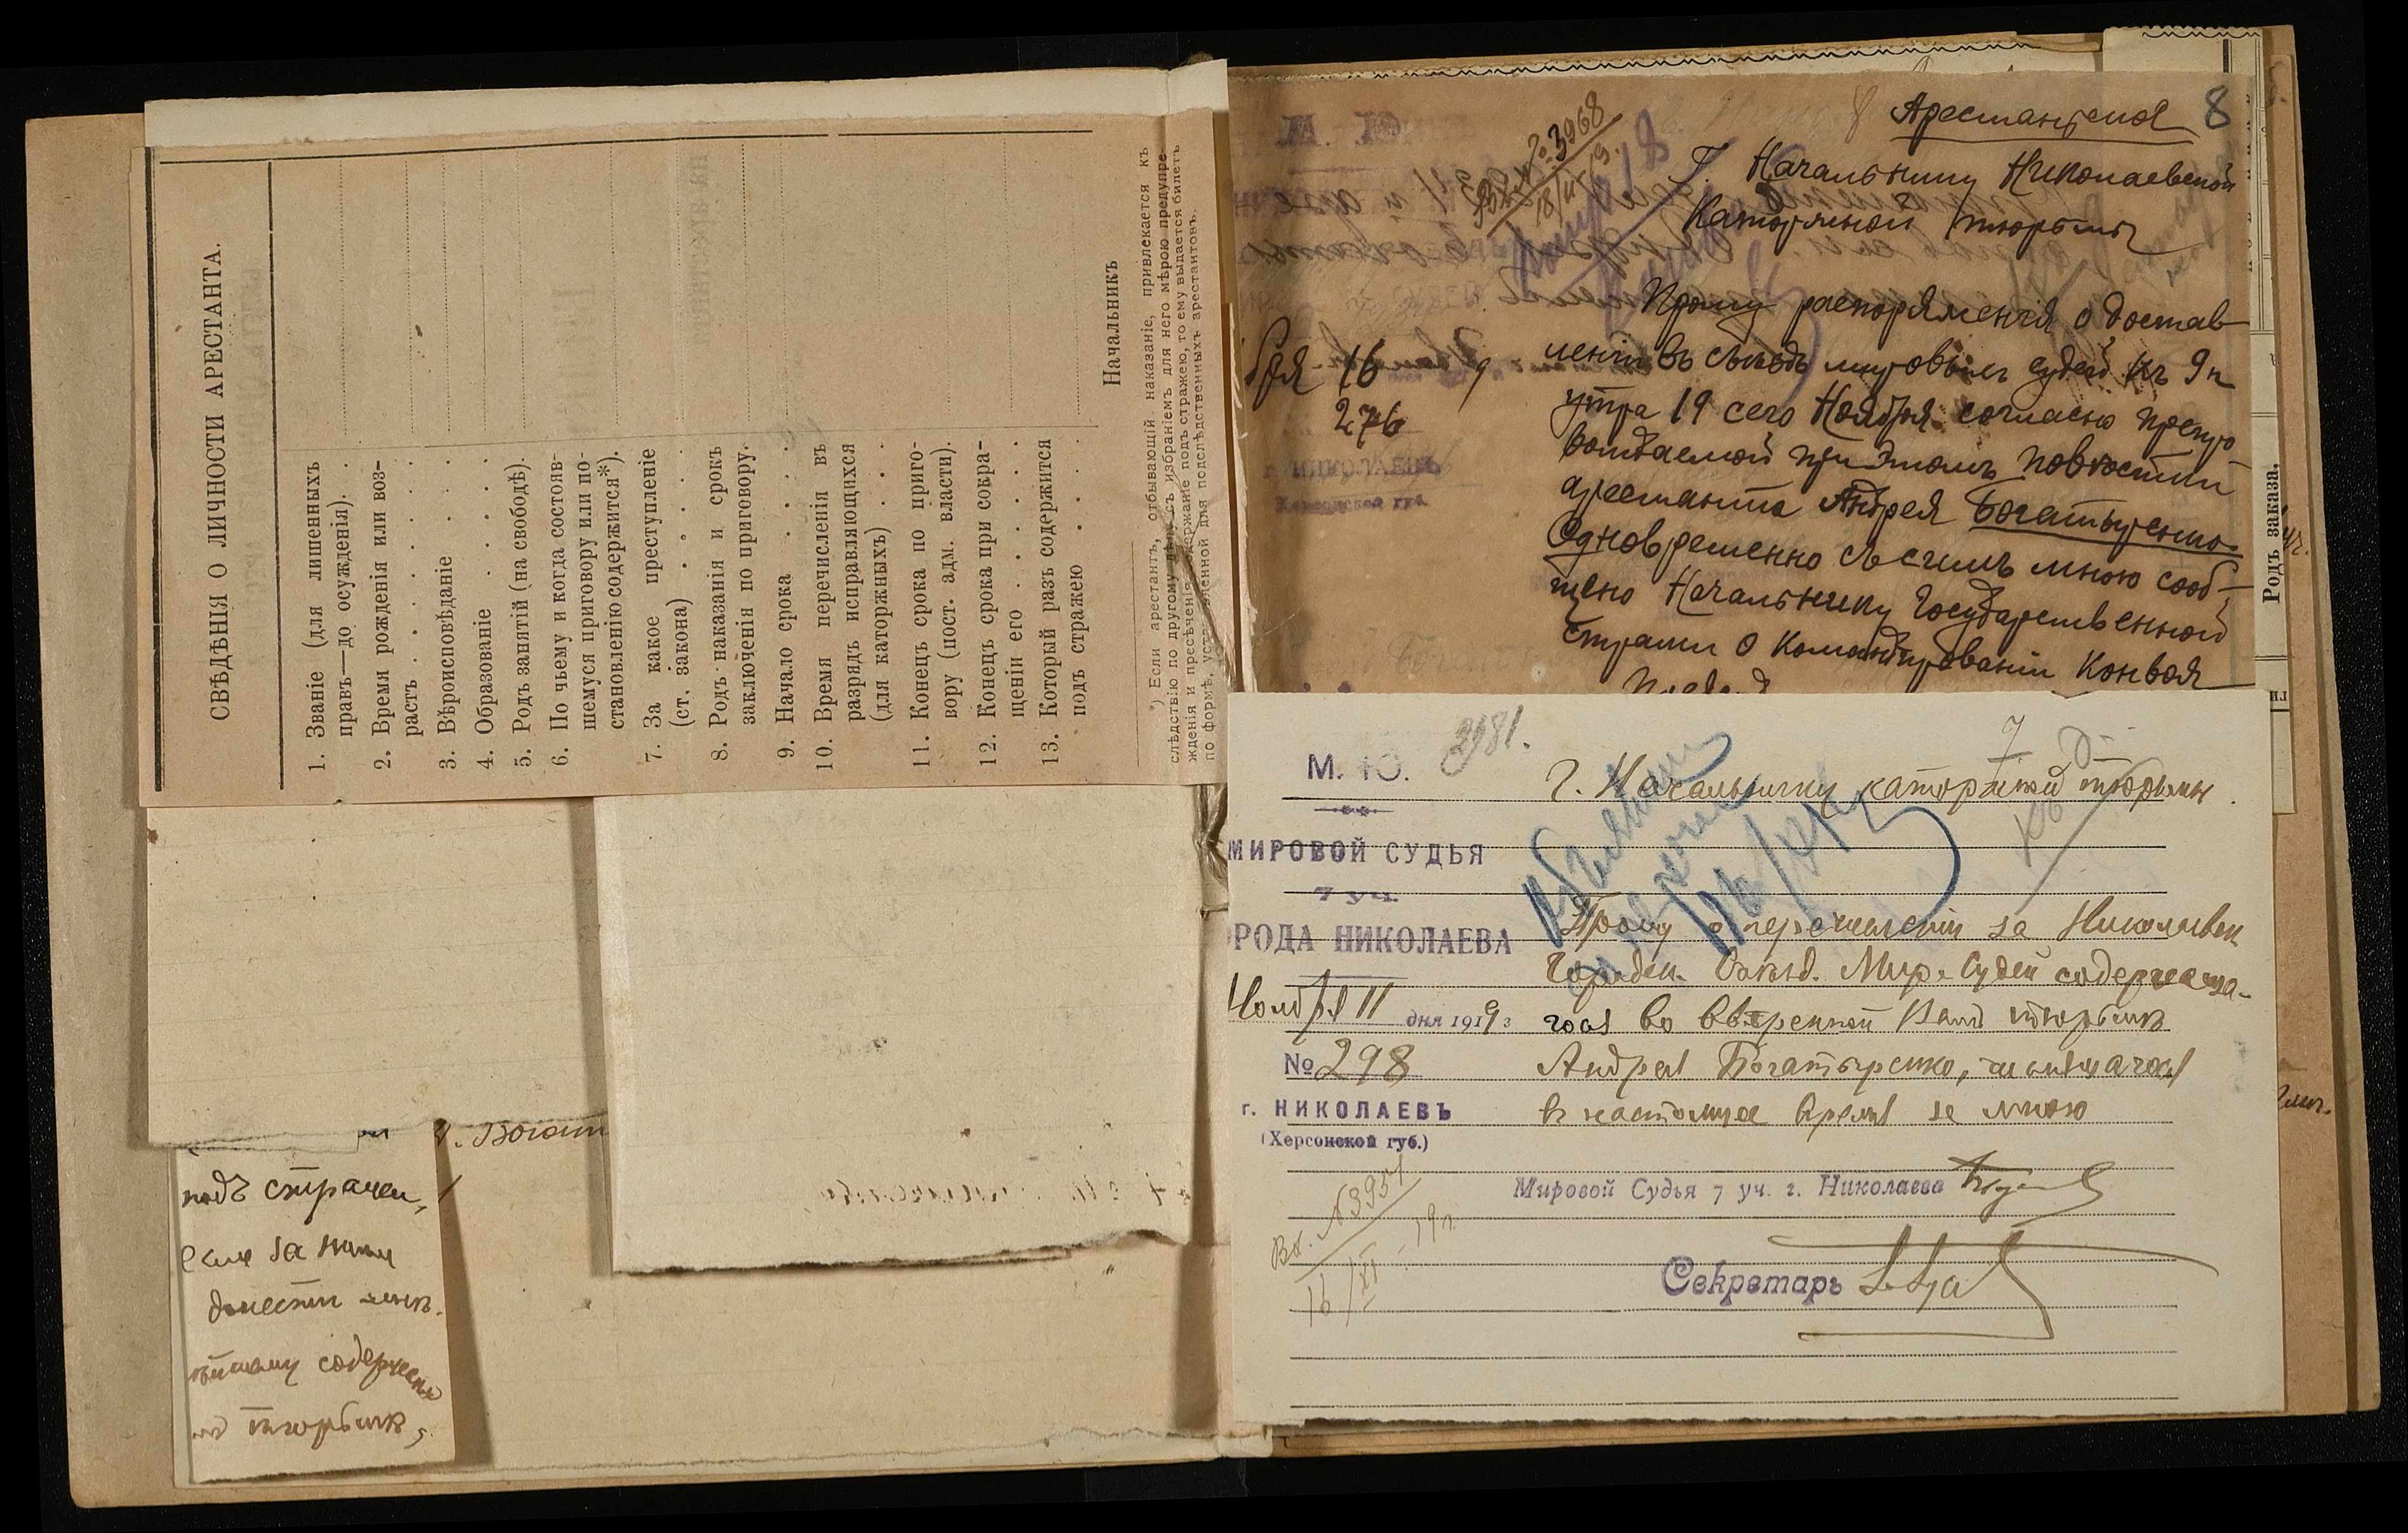 СВѢДѢНІЯ О ЛИЧНОСТИ АРЕСТАНТА.
1. Званіе (для лишенныхъ
правъ—до осужденія). .
2. Время рожденія или воз-
растъ . . . . . .
3. Вѣроисповѣданіе . . .
4. Образованіе . . . .
5. Родъ занятій (на свободѣ).
6. По чьему и когда состояв-
шемуся приговору или по-
становленію содержится*).
7. За какое преступленіе
(ст. закона) . . . . .
8. Родъ наказанія и срокъ
заключенія по приговору.
9. Начало срока . . . .
10. Время перечисленія въ
разрядъ исправляющихся
(для каторжныхъ) . . .
11. Конецъ срока по приго-
вору (пост. адм. власти).
12. Конецъ срока при сокра-
щеніи его . . . . . .
13. Который разъ содержится
подъ стражею . . . .
Начальникъ
*) Если арестантъ, отбывающій наказаніе, привлекается къ
слѣдствію по другому дѣлу съ избраніемъ для него мѣрою предупре-
жденія и пресѣченія содержаніе подъ стражею, то ему выдается билетъ
по формѣ, установленной для подслѣдственныхъ арестантовъ.
. Богат
подъ стражей,
если за ним
донести мнѣ.
содержан
тюрьмѣ,
Арестантская 8
Вх. № 3968
18/XI 19 г.
Г. Начальнику Николаевской
Каторжной тюрьмы
Прошу распоряженія о достав-
леніи въ съѣздъ мировыхъ судей къ 9 ч
бря 16 9
утра 19 сего Ноября согласно препро
276
вождаемой при этомъ повѣстки
г. НИКОЛАЕВЪ
Херсонской губ.
арестанта Андрея Богатыренко.
Одновременно съ симъ мною сооб-
щено Начальнику Государственной
Стражи о командированіи Конвоя
Родъ заказа.
М. Ю.
3981.
7
Г. Начальнику каторжной тюрьмы.
МИРОВОЙ СУДЬЯ
7 уч.
16/XI
ОРОДА НИКОЛАЕВА
Прошу о перечисленіи за Николаевск
Городск. Съѣзд. Мир. Судей содержаща-
Ноября 11 дня 1919 г
гося во ввѣренной Вамъ тюрьмѣ
№ 298
Андрея Богатыренко, числящагося
г. НИКОЛАЕВЪ
(Херсонской губ.)
въ настоящее время за мною
Мировой Судья 7 уч. г. Николаева
Вх. № 3951
16/XI - 19 г.
Секретарь